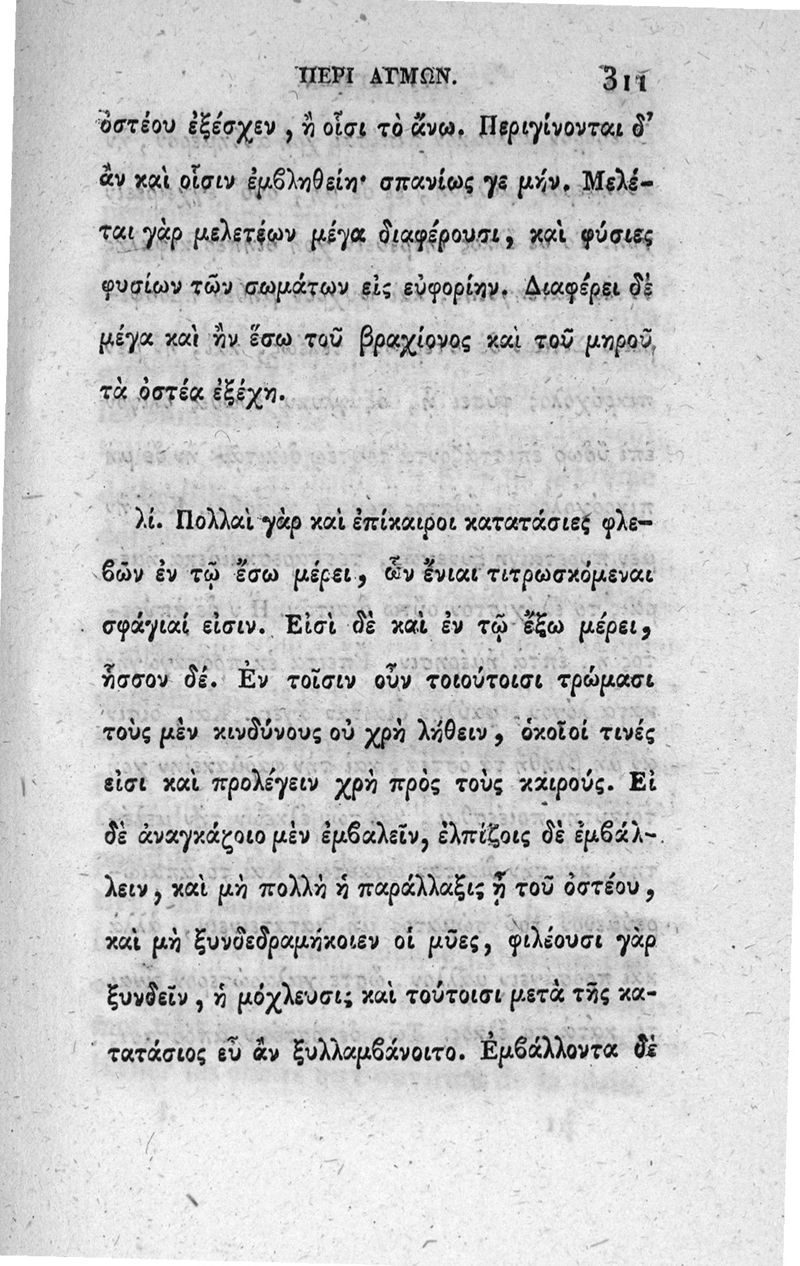 ΠΕΡΙ ΑΓΜΩΝ. 311
ὀστέου ἐξέσχεν, ἢ οἷσι τὸ ἄνω. Περιγίνονται δ’
ἂν καὶ οἷσιν ἐμβληθείη· σπανίως γε μήν. Μελέ-
ται γὰρ μελετέων μέγα διαφέρουσι, καὶ φύσιες
φυσίων τῶν σωμάτων εἰς εὐφορίην. Διαφέρει δὲ
μέγα καὶ ἢν ἔσω τοῦ βραχίονος καὶ τοῦ μηροῦ,
τὰ ὀστέα ἐξέχη.
λί. Πολλαὶ γὰρ καὶ ἐπίκαιροι κατατάσιες φλε-
βῶν ἐν τῷ ἔσω μέρει, ὧν ἔνιαι τιτρωσκόμεναι
σφάγιαί εἰσιν. Εἰσὶ δὲ καὶ ἐν τῷ ἔξω μέρει,
ἧσσον δέ. Ἐν τοῖσιν οὖν τοιούτοισι τρώμασι
τοὺς μὲν κινδύνους οὐ χρὴ λήθειν, ὁκοῖοί τινές
εἰσι καὶ προλέγειν χρὴ πρὸς τοὺς καιρούς. Εἰ
δὲ ἀναγκάζοιο μὲν ἐμβαλεῖν, ἐλπίζοις δὲ ἐμβάλ-
λειν, καὶ μὴ πολλὴ ἡ παράλλαξις ᾖ τοῦ ὀστέου,
καὶ μὴ ξυνδεδραμήκοιεν οἱ μῦες, φιλέουσι γὰρ
ξυνδεῖν, ἡ μόχλευσις καὶ τούτοισι μετὰ τῆς κα-
τατάσιος εὖ ἂν ξυλλαμβάνοιτο. Ἐμβάλλοντα δὲ